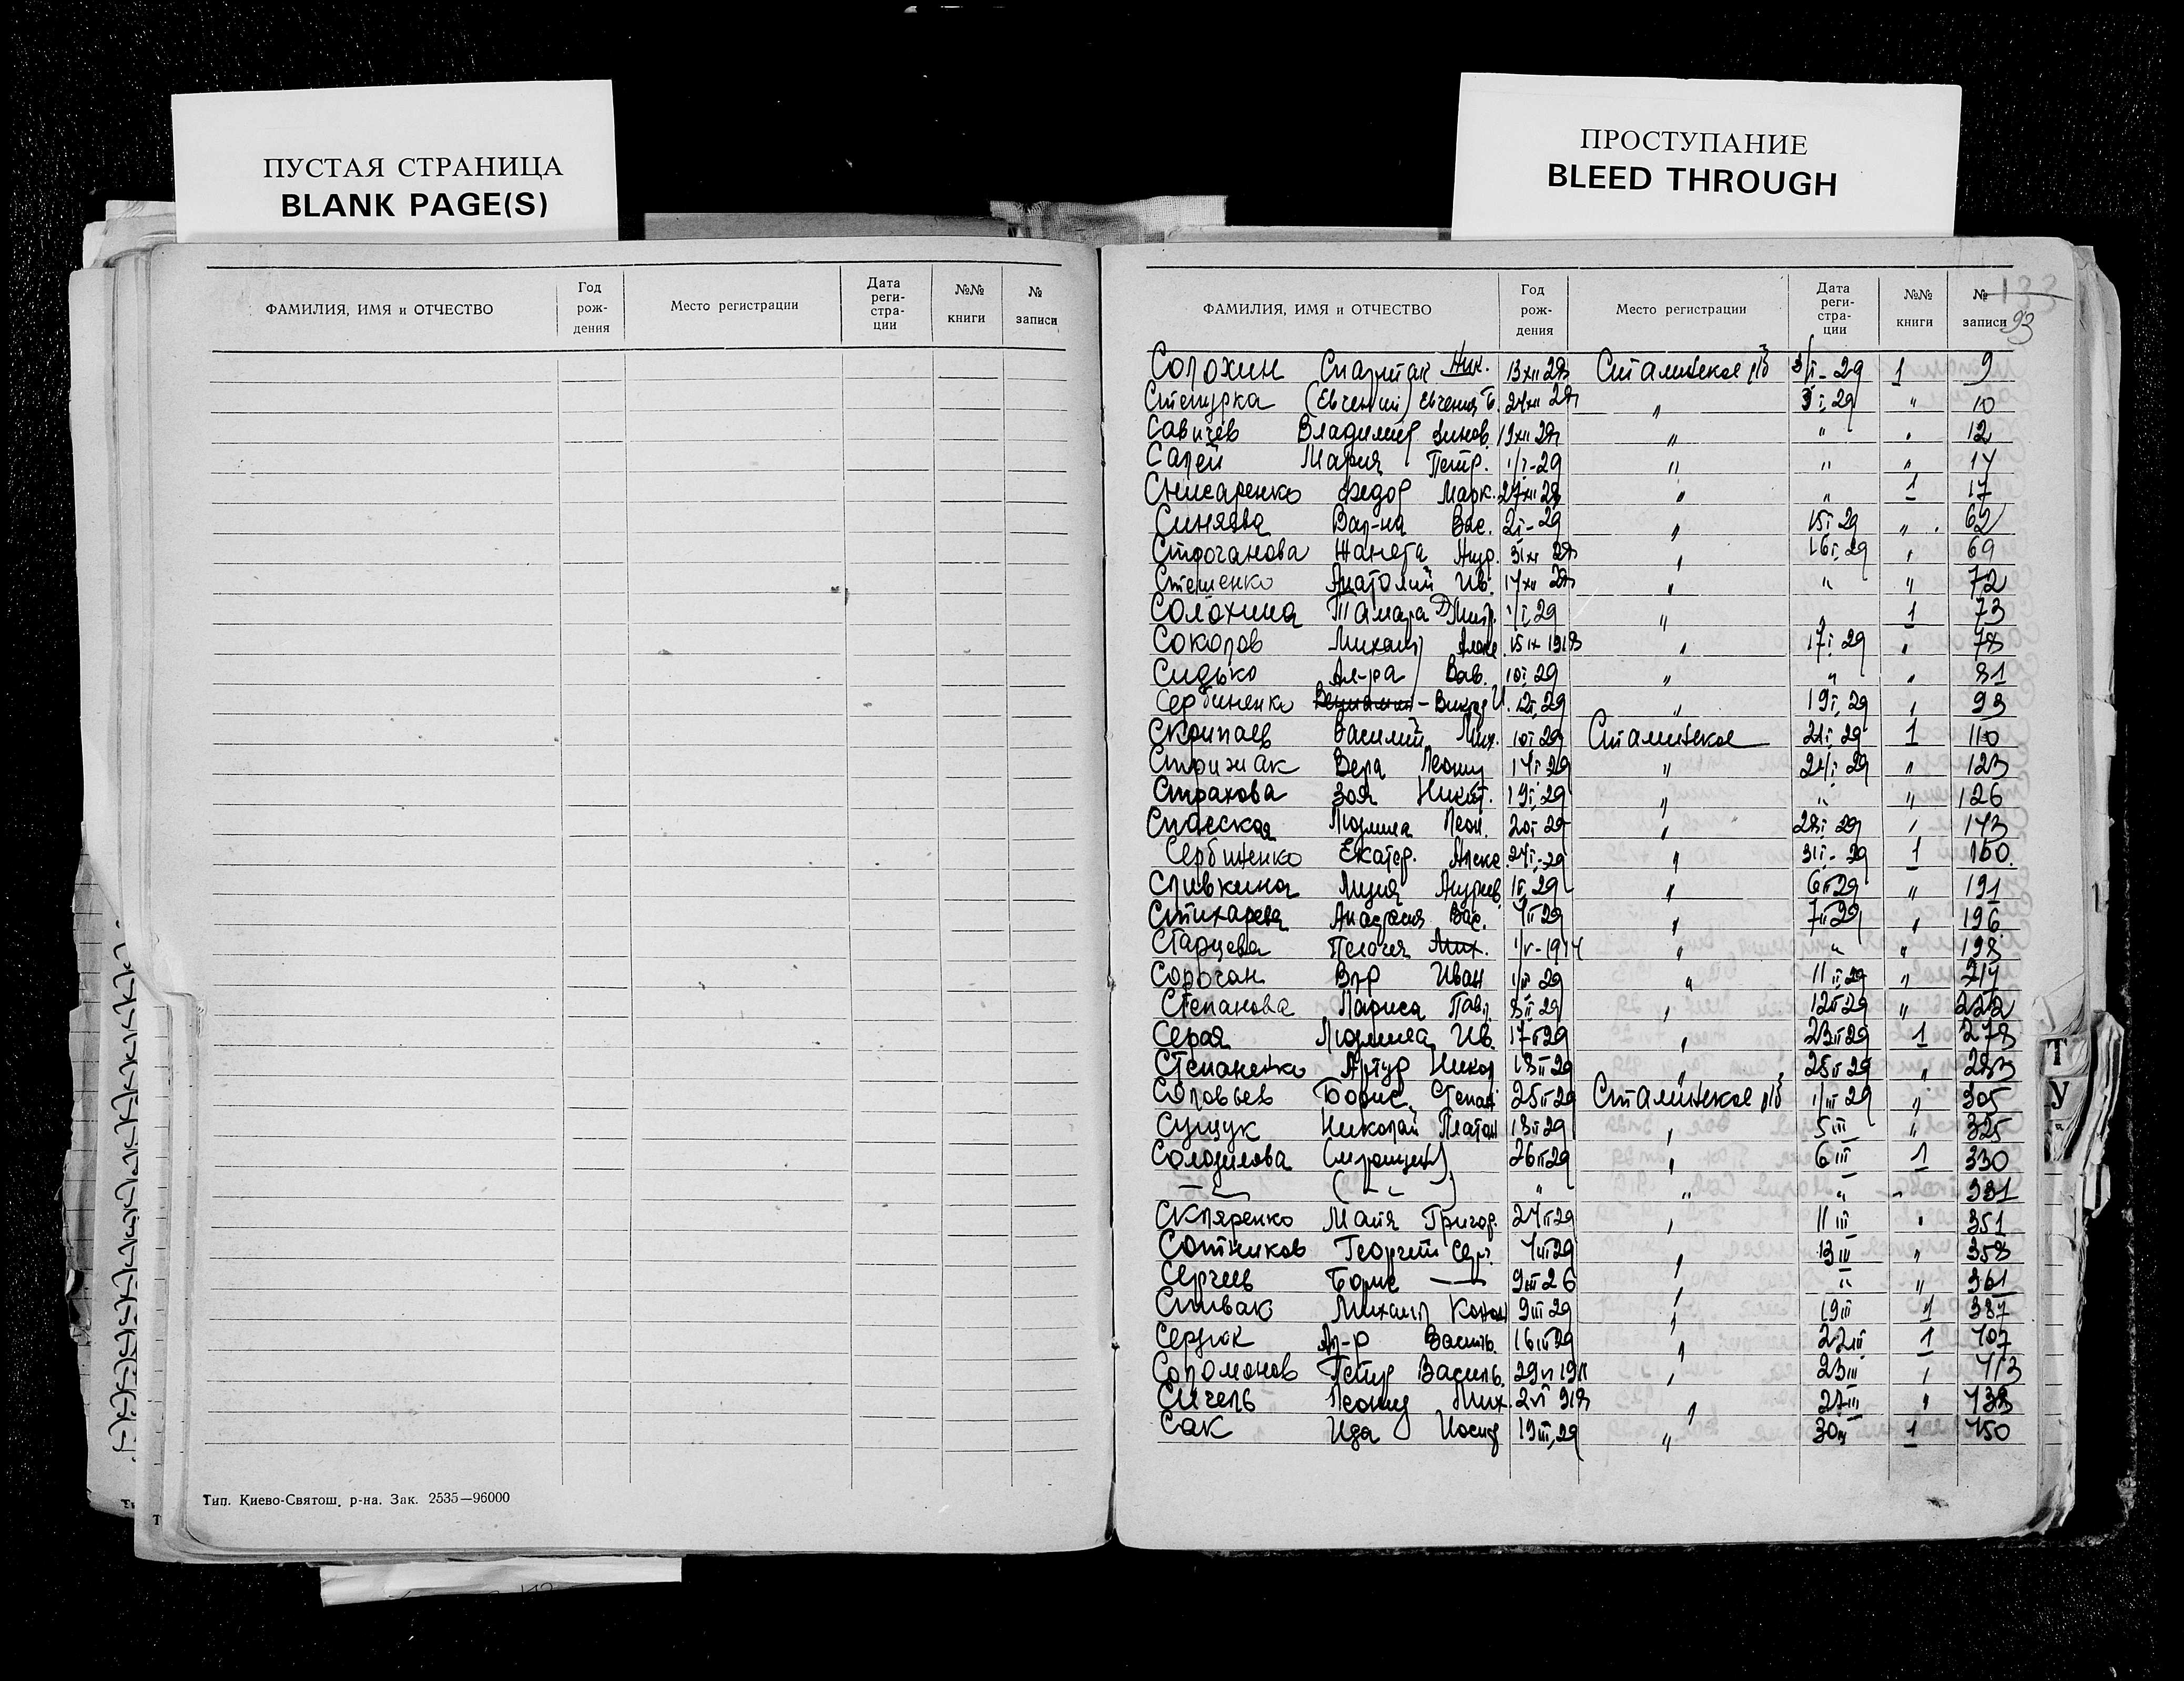 ПУСТАЯ СТРАНИЦА
BLANK PAGE(S)
ПРОСТУПАНИЕ
BLEED THROUGH
ФАМИЛИЯ, ИМЯ и ОТЧЕСТВО Год рож- дения Место регистрации Дата реги- стра- ции №№ книги № записи
Тип. Киево-Святош. р-на. Зак. 2535—96000
133
93
ФАМИЛИЯ, ИМЯ и ОТЧЕСТВО Год рож- дения Место регистрации Дата реги- стра- ции №№ книги № записи
Солохин Спартак Ник. 13 XII 28 Сталинское 3/I-29 1 9
(Евгений) Евгения 24 XII 28 " 3 I, 29 " 10
Савичев Владимир Зинов. 19 XII 28 " " " 12
Сапей Мария Петр. 1/I-29 " " " 14
Снисаренко Федор Марк. 27 XII 28 " " 1 17
Синяева Вал-на Вас. 2 I-29 " 15 I 29 " 62
Строганова Жанета Анд. 28 " 16 I, 29 " 69
Стешенко Анатолий Ив. 14 XII 28 " " " 72
Солохина Тамара Дмитр. 1/I, 29 " " 1 73
Соколов Михаил Алекс. 15 IX 1918 " 17 I 29 " 78
Сидько Ал-ра 10 I 29 " " " 81
Сербиненко - Виктор И. 12 I, 29 " 19 I, 29 " 93
Скрипаев Василий Мих. 10 I 29 Сталинское 29 1 110
Стрижак Вера Леонид 14 I 29 " 24/I 29 " 123
Страхова Зоя Никит. 19 I, 29 " " " 126
Спасская Людмила Леон. 20 I 29 " 28 I 29 " 143
Сербиненко Екатер. Алекс. 24 I-29 " 31 I-29 1 160.
Сливкина Лидия Андреев. 1 II, 29 " 6 II 29 " 191
Стихарева Анастасия Вас. 4 II 29 " 7 II 29 " 196
Старцева Пелагея Мих. 1/V-1914 " " " 198
Сорочан Вл-р Иван 1/II 29 " 11 II 29 " 214
Степанова Лариса Павл. 8 II 29 " 12 II 29 " 222
Серая Людмила Ив. 17 II 29 " 23 II 29 1 278
Степаненко Артур Никол 18 II 29 " 25 II 29 " 283
Соловьев Борис Степан 25 II 29 Сталинское 1/III 29 " 305
Сущук Николай Платон 18 II 29 " 5 III " 325
Солодилова 26 II 29 " 6 III 1 330
— " — ( — " — ) " " " " 331
Скляренко Майя Григор. 24 II 29 " 11 III " 351
Сотников Георгий Серг. 4 III 29 " 13 III " 358
Сергеев Борис — " — 9 III 26 " " " 361
Спивак Михаил 9 III 29 " 19 III 1 387
Сердюк Ал-р Василь. 16 III 29 " 22 III 1 407
Соломонов Петр Василь. 29 VI 1911 " 23 III " 413
Сигель Леонид Мих. 2 VI 918 " 27 III " 438
Сак Ида Иосиф 19 III, 29 " 30 III 1 450
Т
У